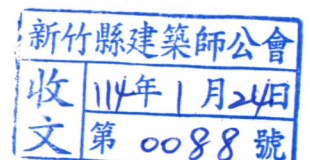 新竹縣建築師公會
收文
114年1月24日
第 0088 號